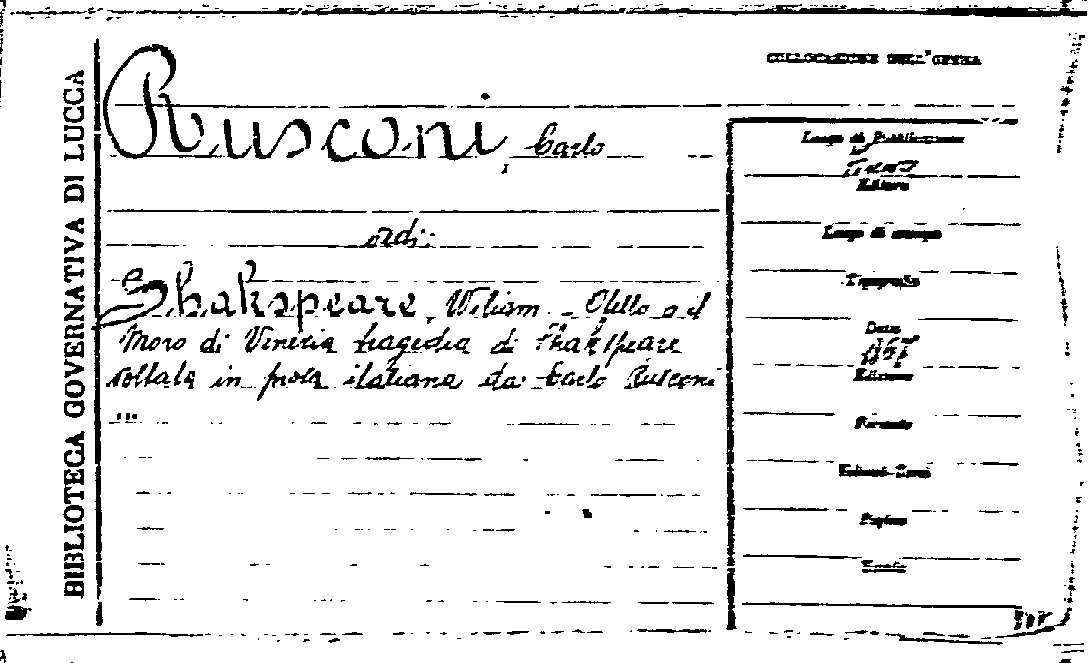 BIBLIOTECA GOVERNATIVA DI LUCCA
COLLOCAZIONE DELL'OPERA
Rusconi, Carlo
ordi:
Shakspeare, Wiliam - Otello o il
Moro di Venezia tragedia di Shakspeare
voltata in prosa italiana da Carlo Rusconi
...
Luogo di Pubblicazione
Editore
Luogo di stampa
Tipografia
Data
Edizione
Formato
Volumi-Tomi
Pagine